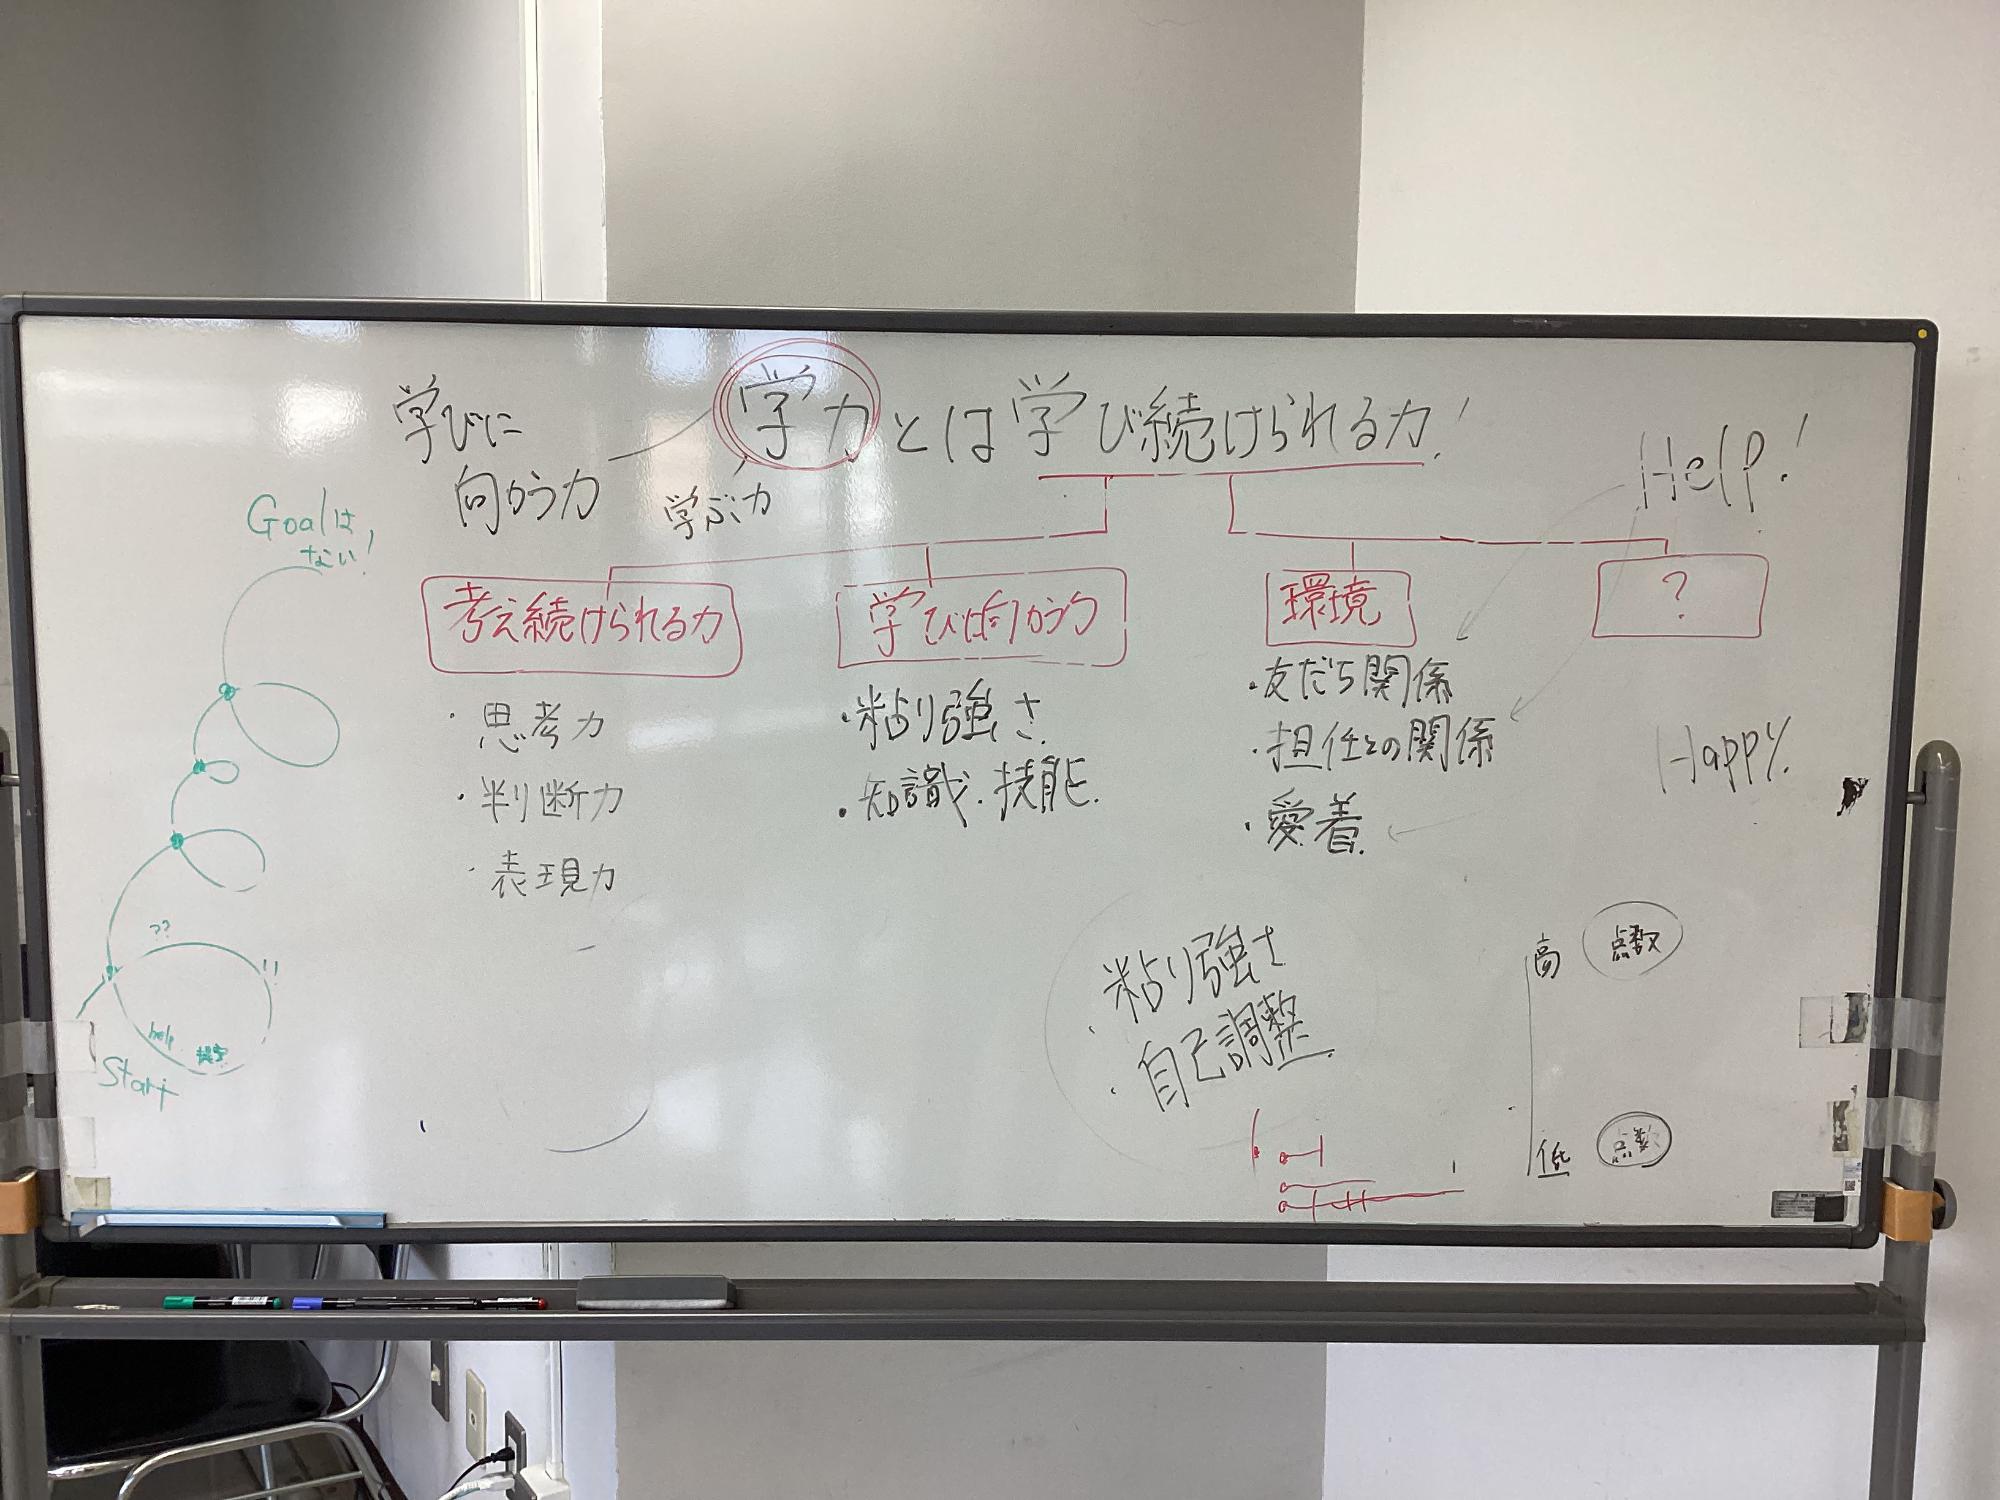 学びに
向かう力
学力とは学び続けられる力!
学ぶ力
Help!
Goalは
ない!
考え続けられる力
学びに向かう力
環境
?
・思考力
・判断力
・表現力
・粘り強さ
・知識・技能
・友だち関係
・担任との関係
・愛着
Happy
??
!!
help
Start
・粘り強さ
・自己調整
高 点数
低 点数